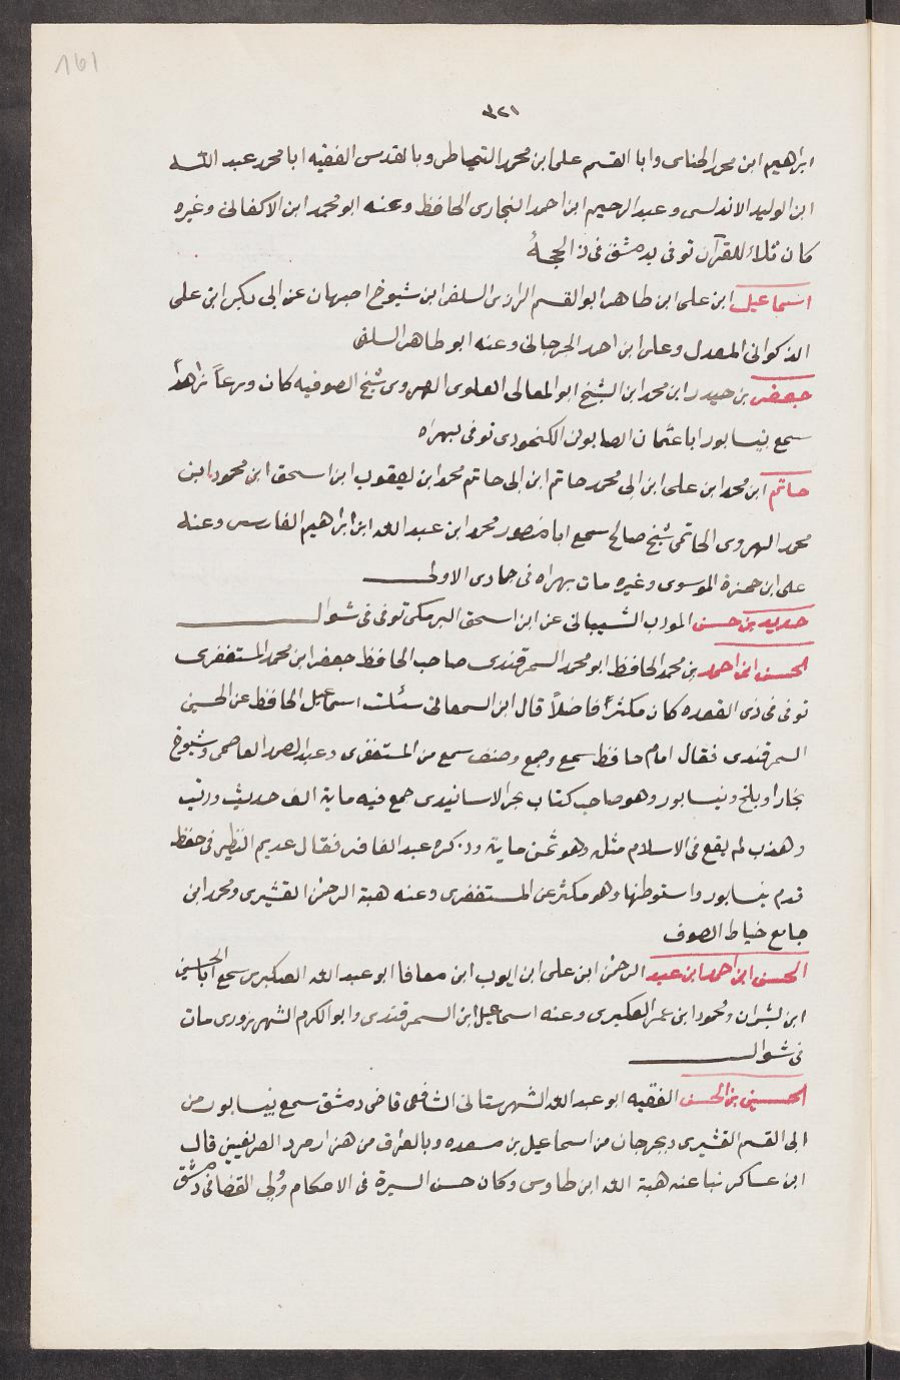 161
٣٢١
ابراهيم ابن محمد الحناى وابا القسم على ابن محمد وبالقدس الفقيه ابا محمد عبد الله
ابن الوليد الاندلسى وعبد الرحيم ابن احمد البخارى الحافظ وعنه ابو محمد ابن الاكفانى وغيره
كان للقرآن توفى بدمشق فى ذ الحجة
اسماعيل ابن على ابن طاهر ابو القسم الرازى السلفى ابن شيوخ اصبهان عن ابى بكر ابن على
الذكوانى المعدل وعلى ابن احمد الجرجانى وعنه ابو طاهر السلفى
جعفر بن حيدر ابن محمد ابن الشيخ ابو المعالى العلوى الهروى شيخ الصوفيه كان ورعاً زاهداً
سمع نيسابور ابا عثمان الصابونى الكنجودى توفى بهراه
حاتم ابن محمد ابن على ابن ابى محمد حاتم ابن ابى حاتم محمد ابن يعقوب ابن اسحق ابن محمود ابن
محمد الهروى الحاتمى شيخ صالح سمع ابا منصور محمد ابن عبد الله ابن ابراهيم الفارسى وعنه
على ابن حمزة الموسوى وغيره مات بهراه فى جمادى الاولى
حديد بن حسن المودب الشيبانى عن ابن اسحق البرمكى توفى فى شوال
الحسن ابن احمد بن محمد الحافظ ابو محمد السمرقندى صاحب الحافظ جعفر ابن محمد المستغفرى
توفى فى ذى القعده كان مكثراً فاضلاً قال ابن السمعانى سئلت اسماعيل الحافظ عن الحسين
السمرقندى فقال امام حافظ سمع وجمع وصنف سمع من المستغفرى وعبد الصمد العاصمى وشيوخ
بخارا وبلخ ونيسابور وهو صاحب كتاب بحر الاسانيدى جمع فيه ماية الف حديث ورتب
وهذب لم يقع فى الاسلام مثله وهو ثمن ماية وذكره عبد الغافر فقال عديم النظير فى حفظه
قدم نيسابور واستوطنها وهو مكثر عن المستغفرى وعنه هبة الرحمن القشيرى ومحمد ابن
جامع خياط الصوف
الحسن ابن احمد ابن عبد الرحمن ابن على ابن ايوب ابن معافا ابو عبد الله العكبرى سمع ابا الحسين
ابن بشران ومحمود ابن عمر العكبرى وعنه اسماعيل ابن السمرقندى وابو الكرم الشهرزورى مات
فى شوال
الحسين بن الحسن الفقيه ابو عبد الله الشهرستانى الشافعى قاضى دمشق سمع نيسابور من
ابى القسم القشيرى وبجرجان من اسماعيل بن مسعده وبالعراق من هزارمرد الصريفينى قال
ابن عساكر نبا عنه هبة الله ابن طاوس وكان حسن السيرة فى الاحكام وُلى القضا فى دمشق